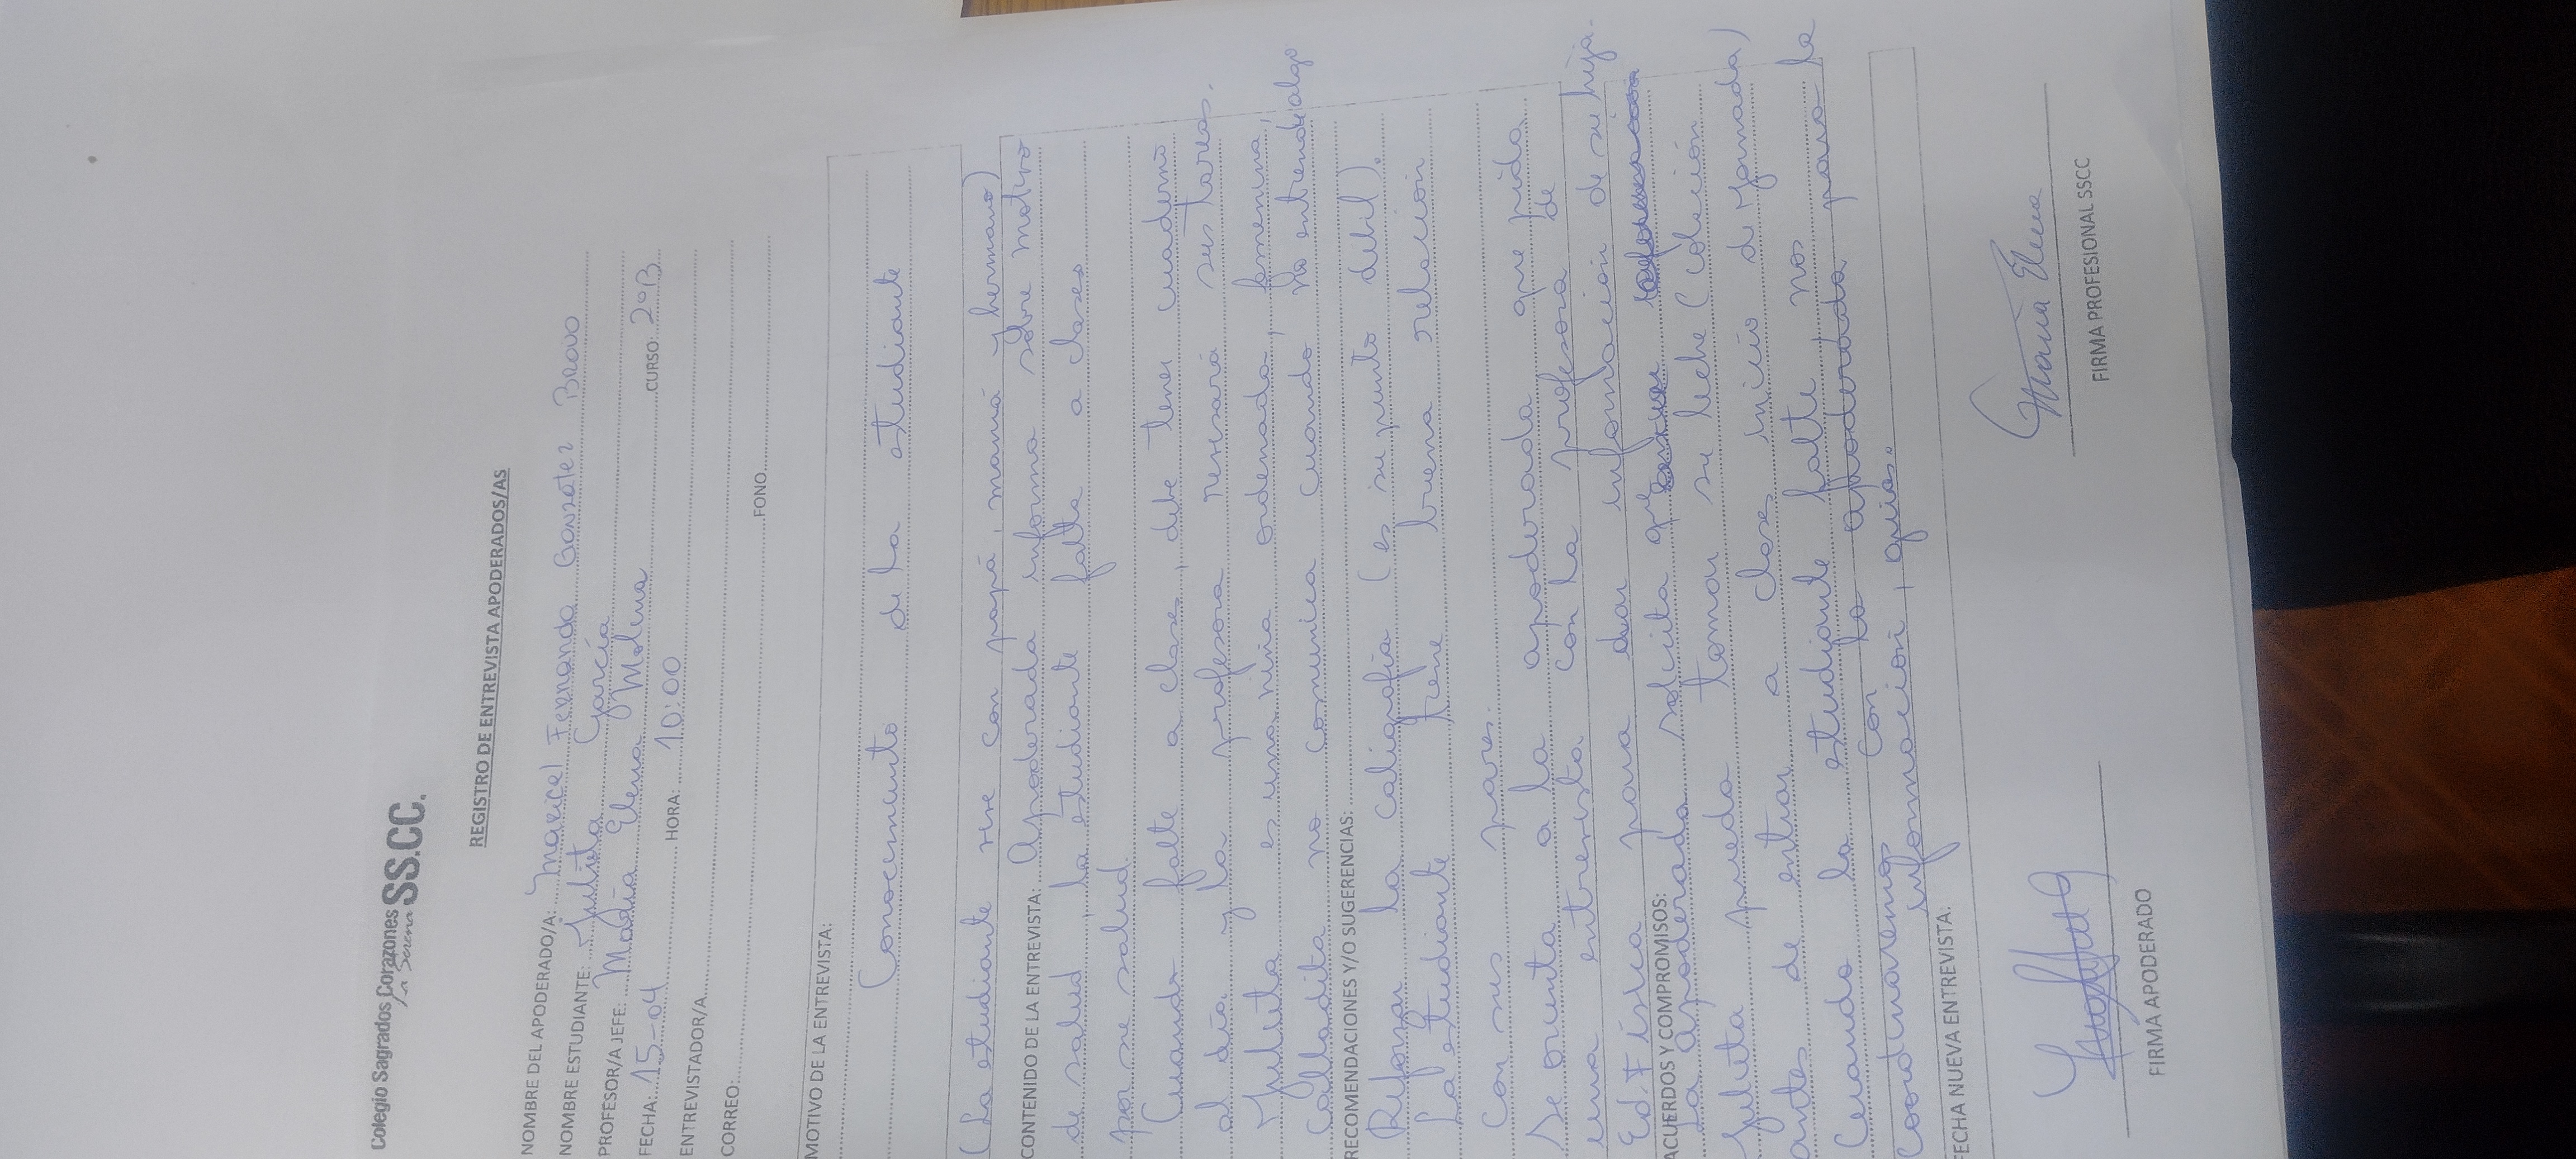 Colegio Sagrados Corazones SS.CC.
La Serena
REGISTRO DE ENTREVISTA APODERADOS/AS
NOMBRE DEL APODERADO/A: Maricel Fernanda González Bravo
NOMBRE ESTUDIANTE: Julieta García
PROFESOR/A JEFE: María Elena Molina
FECHA: 15-04 HORA: 10:00 CURSO: 2°B
ENTREVISTADOR/A
CORREO: FONO
MOTIVO DE LA ENTREVISTA:
Conocimiento de la estudiante
(La estudiante vive con papá, mamá y hermano)
CONTENIDO DE LA ENTREVISTA: Apoderada informa sobre motivo
de salud, la estudiante falta a clases
por su salud.
Cuando falte a clase, debe tener cuaderno
al día y la profesora revisará sus tareas.
Julieta es una niña ordenada, femenina,
Calladita no comunica cuando no entiende algo
RECOMENDACIONES Y/O SUGERENCIAS:
Reforzar la caligrafía (es su punto débil).
La estudiante tiene buena relación
con sus pares.
Se orienta a la apoderada que pida
una entrevista con la profesora de
Ed. Física para dar información de su hija.
ACUERDOS Y COMPROMISOS:
La apoderada solicita que
Julieta pueda tomar su leche (colación
antes de entrar a clases inicio de jornada)
Cuando la estudiante falte, nos
coordinaremos con la apoderada, para la
información, guías.
FECHA NUEVA ENTREVISTA:
María Elena
FIRMA APODERADO FIRMA PROFESIONAL SSCC